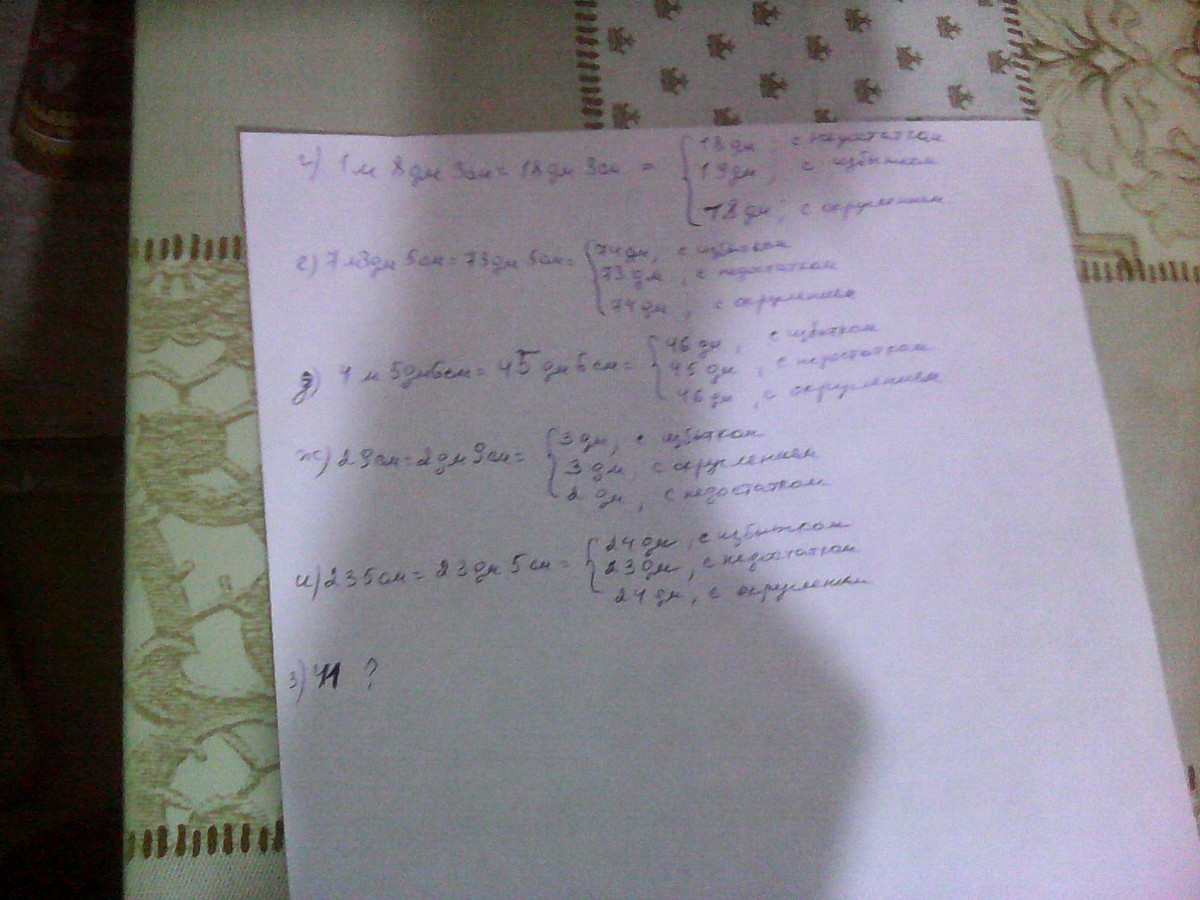 г) 1 м 8 дм 3 см = 18 дм 3 см = { 18 дм ; с недостатком
19 дм ; с избытком
18 дм ; с округлением
е) 7 м 3 дм 5 см = 73 дм 5 см = { 74 дм, с избытком
73 дм , с недостатком
74 дм ; с округлением
д) 4 м 5 дм 6 см = 45 дм 6 см = { 46 дм , с избытком
45 дм , с недостатком
46 дм , с округлением
ж) 29 см = 2 дм 9 см = { 3 дм, с избытком
3 дм, с округлением
2 дм , с недостатком
и) 235 см = 23 дм 5 см = { 24 дм , с избытком
23 дм , с недостатком
24 дм , с округлением
з) ?